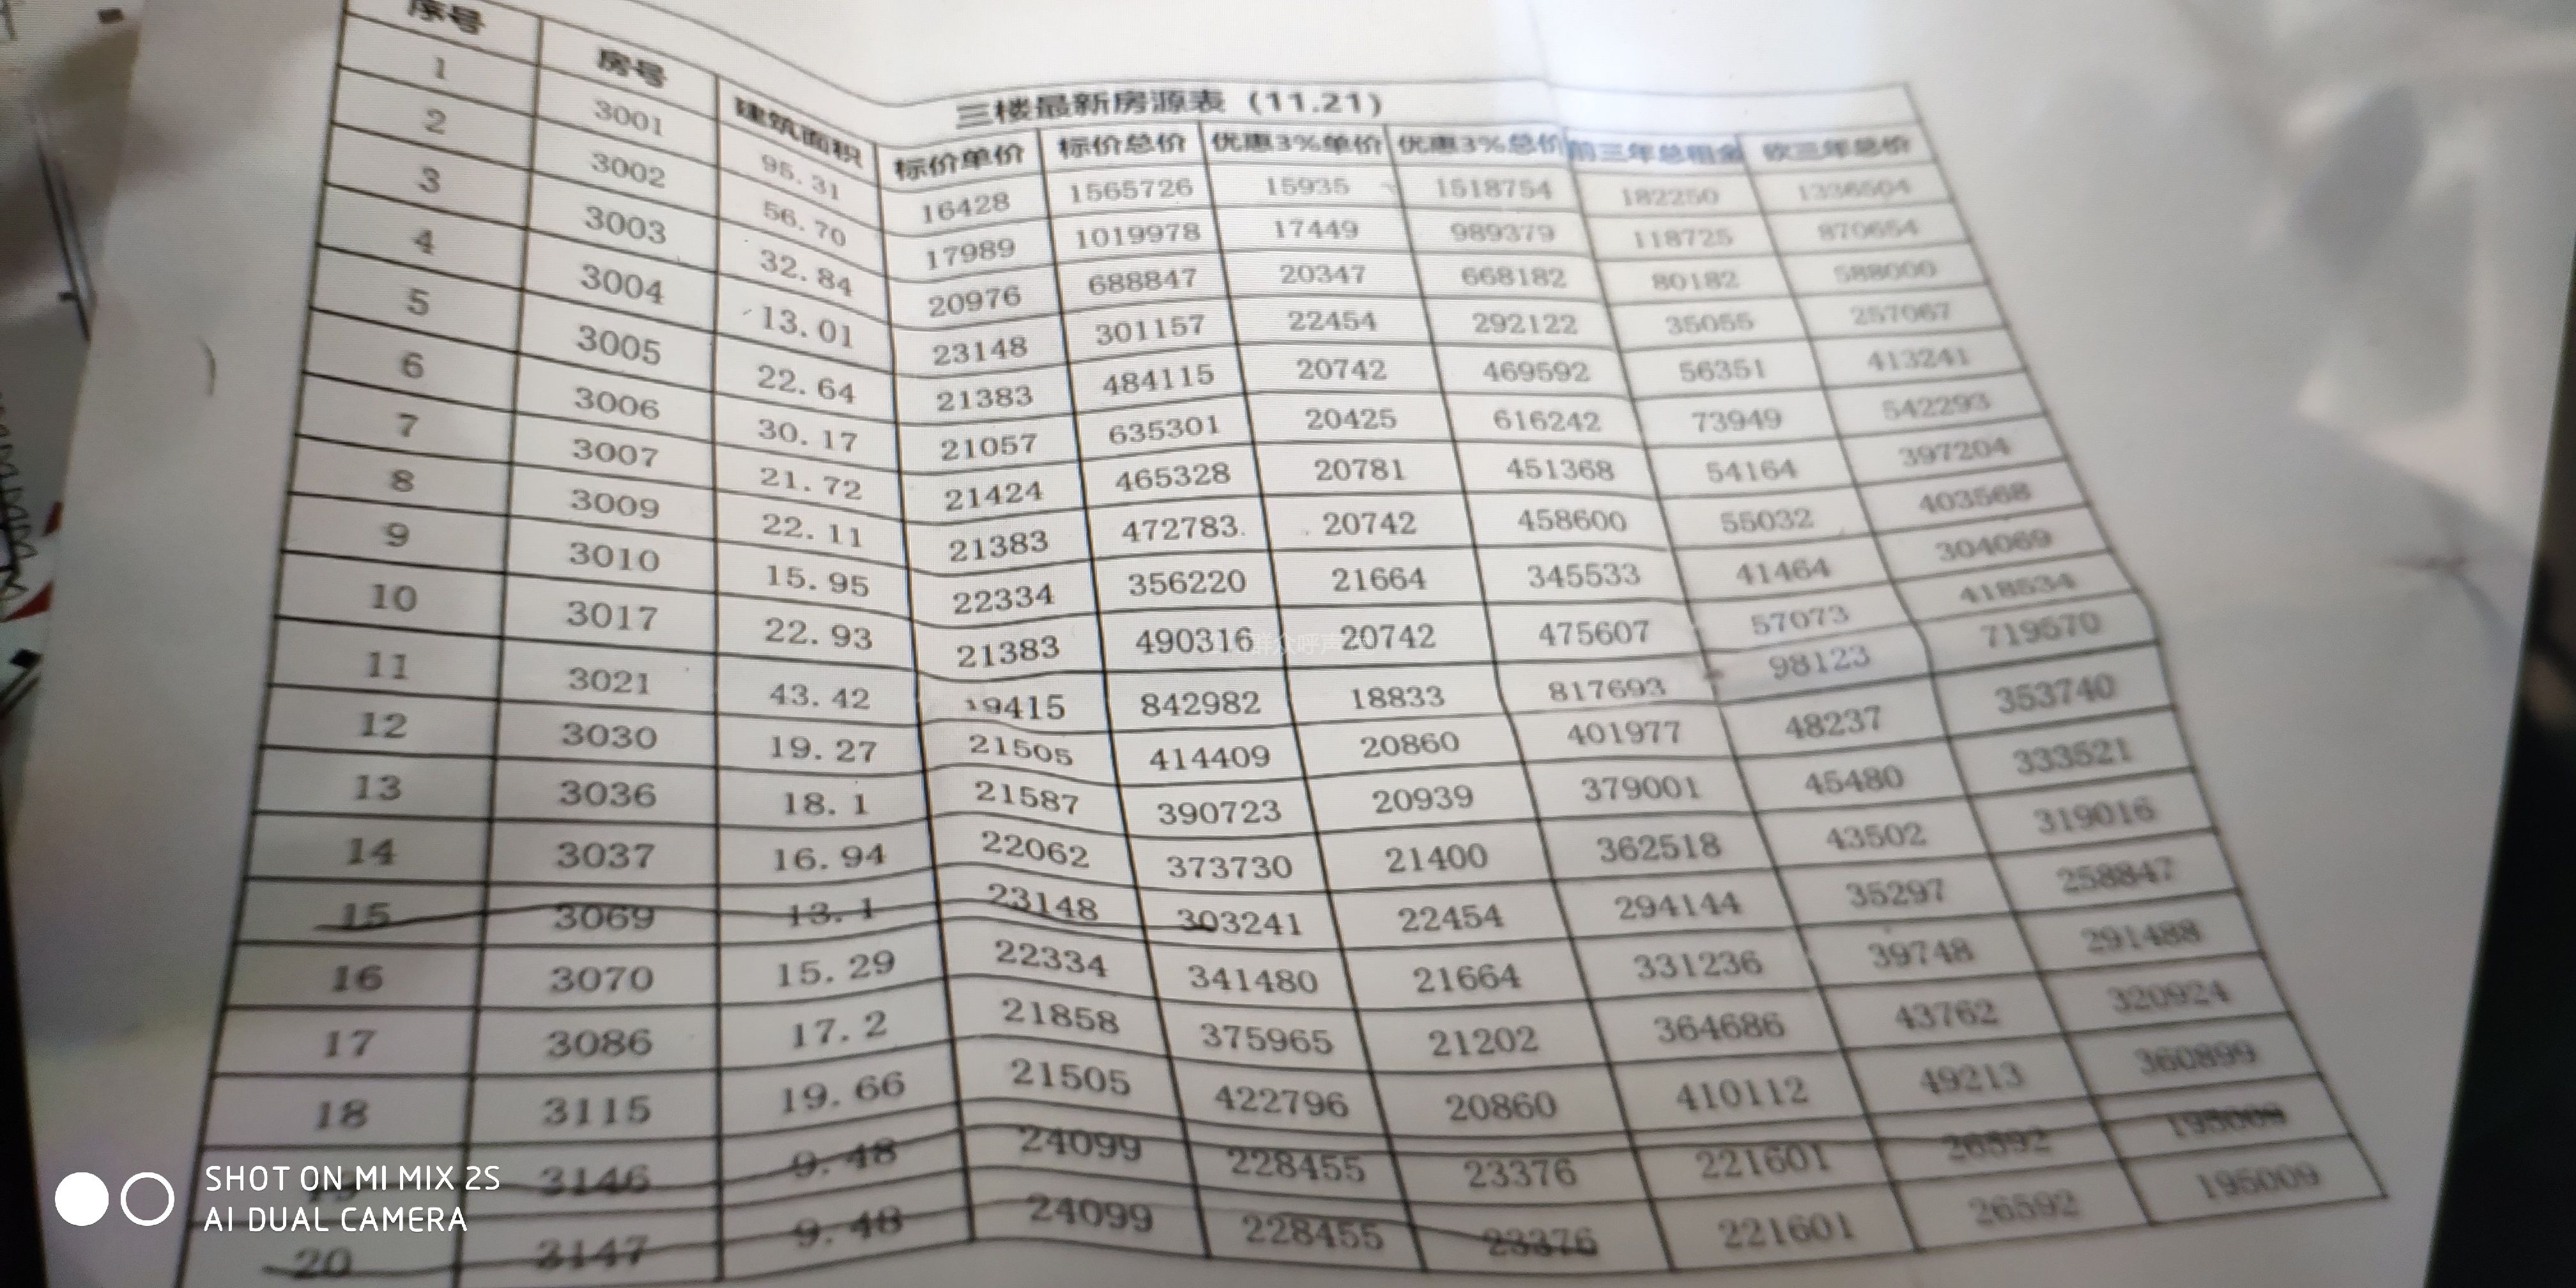 三楼最新房源表（11.21）
序号 房号 建筑面积 标价单价 标价总价 优惠3%单价 优惠3%总价 前三年总租金 砍三年总价
1 3001 95.31 16428 1565726 15935 1518754 182250 1336504
2 3002 56.70 17989 1019978 17449 989379 118725 870654
3 3003 32.84 20976 688847 20347 668182 80182 588000
4 3004 13.01 23148 301157 22454 292122 35055 257067
5 3005 22.64 21383 484115 20742 469592 56351 413241
6 3006 30.17 21057 635301 20425 616242 73949 542293
7 3007 21.72 21424 465328 20781 451368 54164 397204
8 3009 22.11 21383 472783 20742 458600 55032 403568
9 3010 15.95 22334 356220 21664 345533 41464 304069
10 3017 22.93 21383 490316 20742 475607 57073 418534
11 3021 43.42 19415 842982 18833 817693 98123 719570
12 3030 19.27 21505 414409 20860 401977 48237 353740
13 3036 18.1 21587 390723 20939 379001 45480 333521
14 3037 16.94 22062 373730 21400 362518 43502 319016
15 3069 13.1 23148 303241 22454 294144 35297 258847
16 3070 15.29 22334 341480 21664 331236 39748 291488
17 3086 17.2 21858 375965 21202 364686 43762 320924
18 3115 19.66 21505 422796 20860 410112 49213 360899
3146 9.48 24099 228455 23376 221601 26592 195009
20 3147 9.48 24099 228455 23376 221601 26592 195009
群众呼声
SHOT ON MI MIX 2S
AI DUAL CAMERA